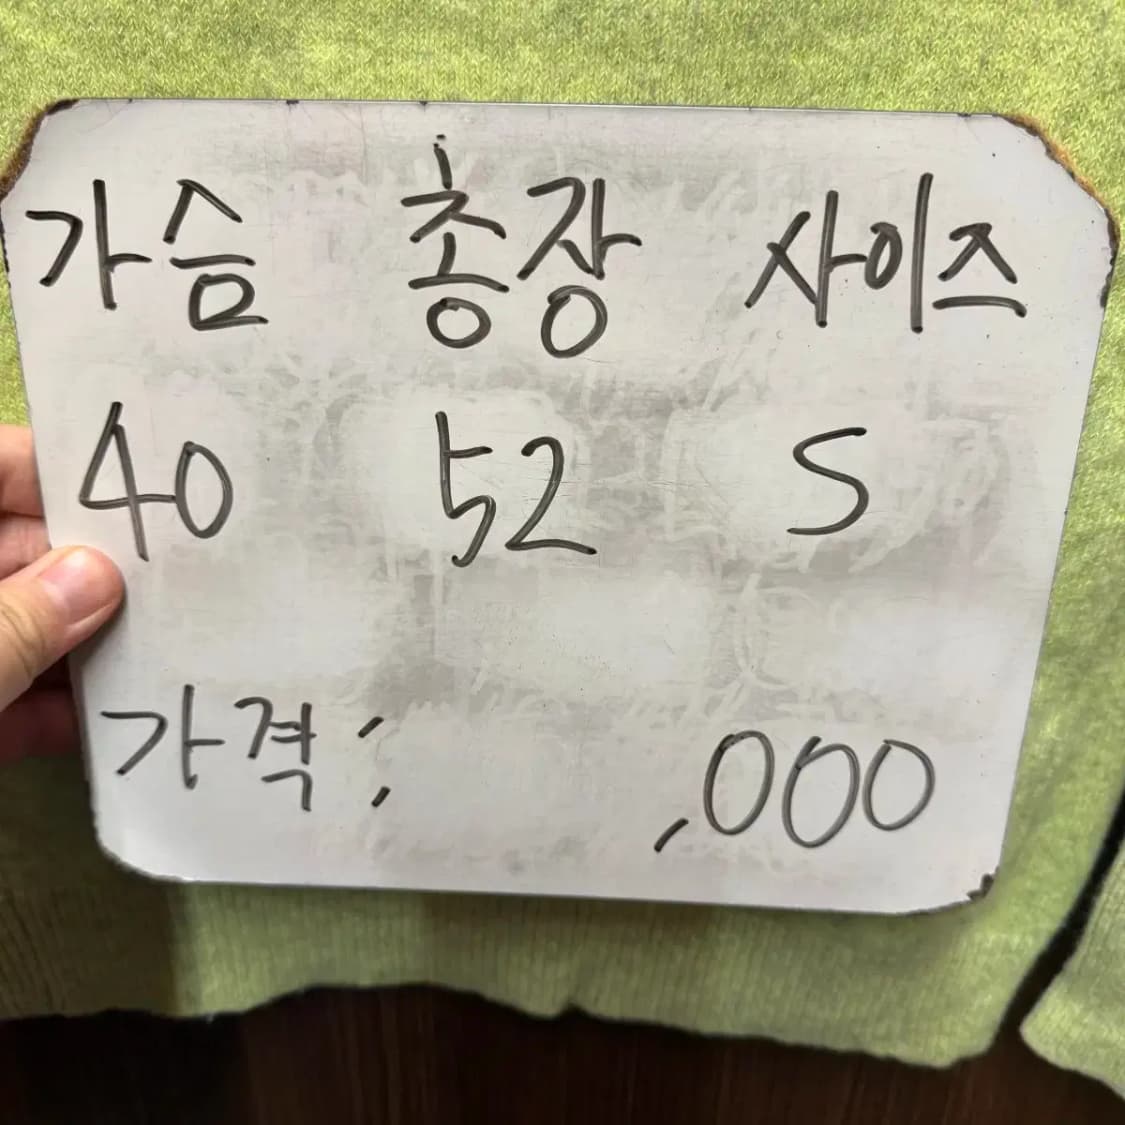 가슴 총장 사이즈
40 52 S
가격: ,000